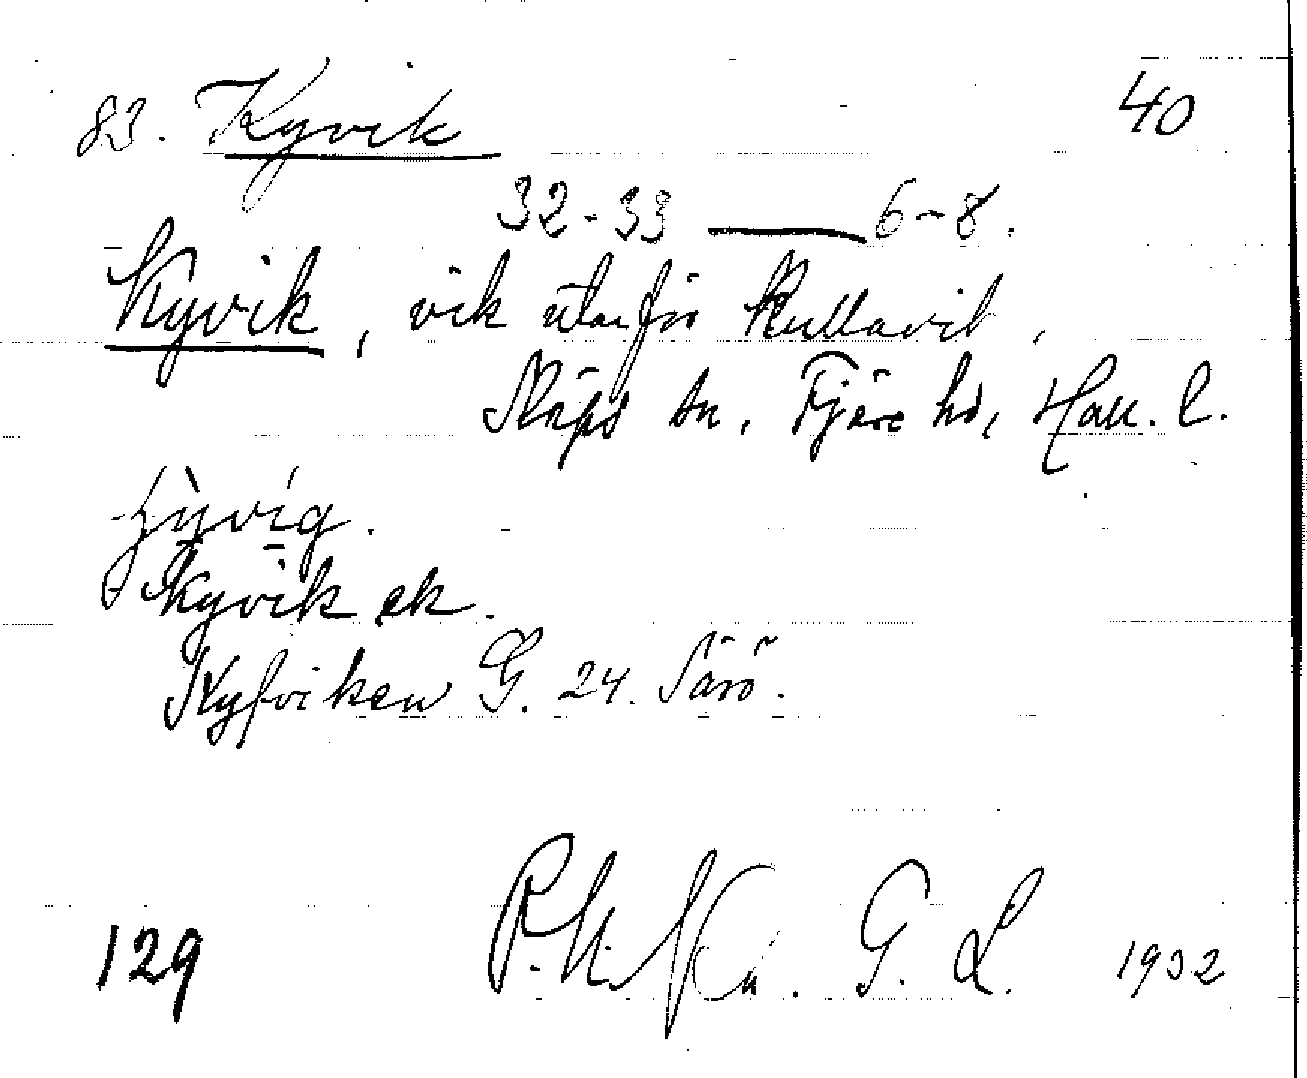 83. Kyvik 40
32-33 — 6-8.
Kyvik, vik utanför Kullavik,
Släps sn, Fjäre hd, Hall. l.
Kyvik ek.
Kyfviken G. 24. Särö.
129 G. L. 1932